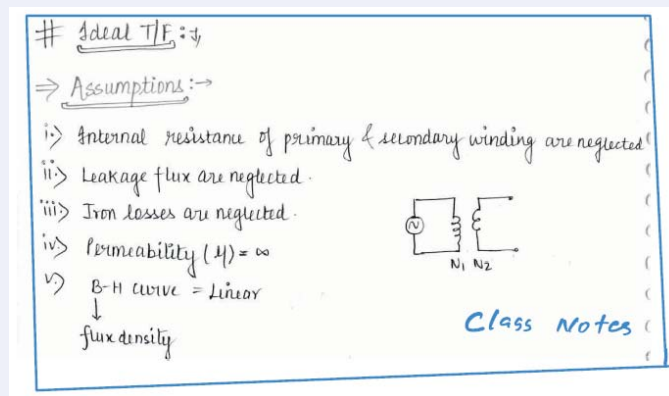 # Ideal T/F :→
⇒ Assumptions :→
i.> Internal resistance of primary & secondary winding are neglected
ii.> Leakage flux are neglected.
iii> Iron losses are neglected.
iv> Permeability (μ) = ∞
v.> B-H curve = Linear
↓
flux density
N1 N2
Class Notes